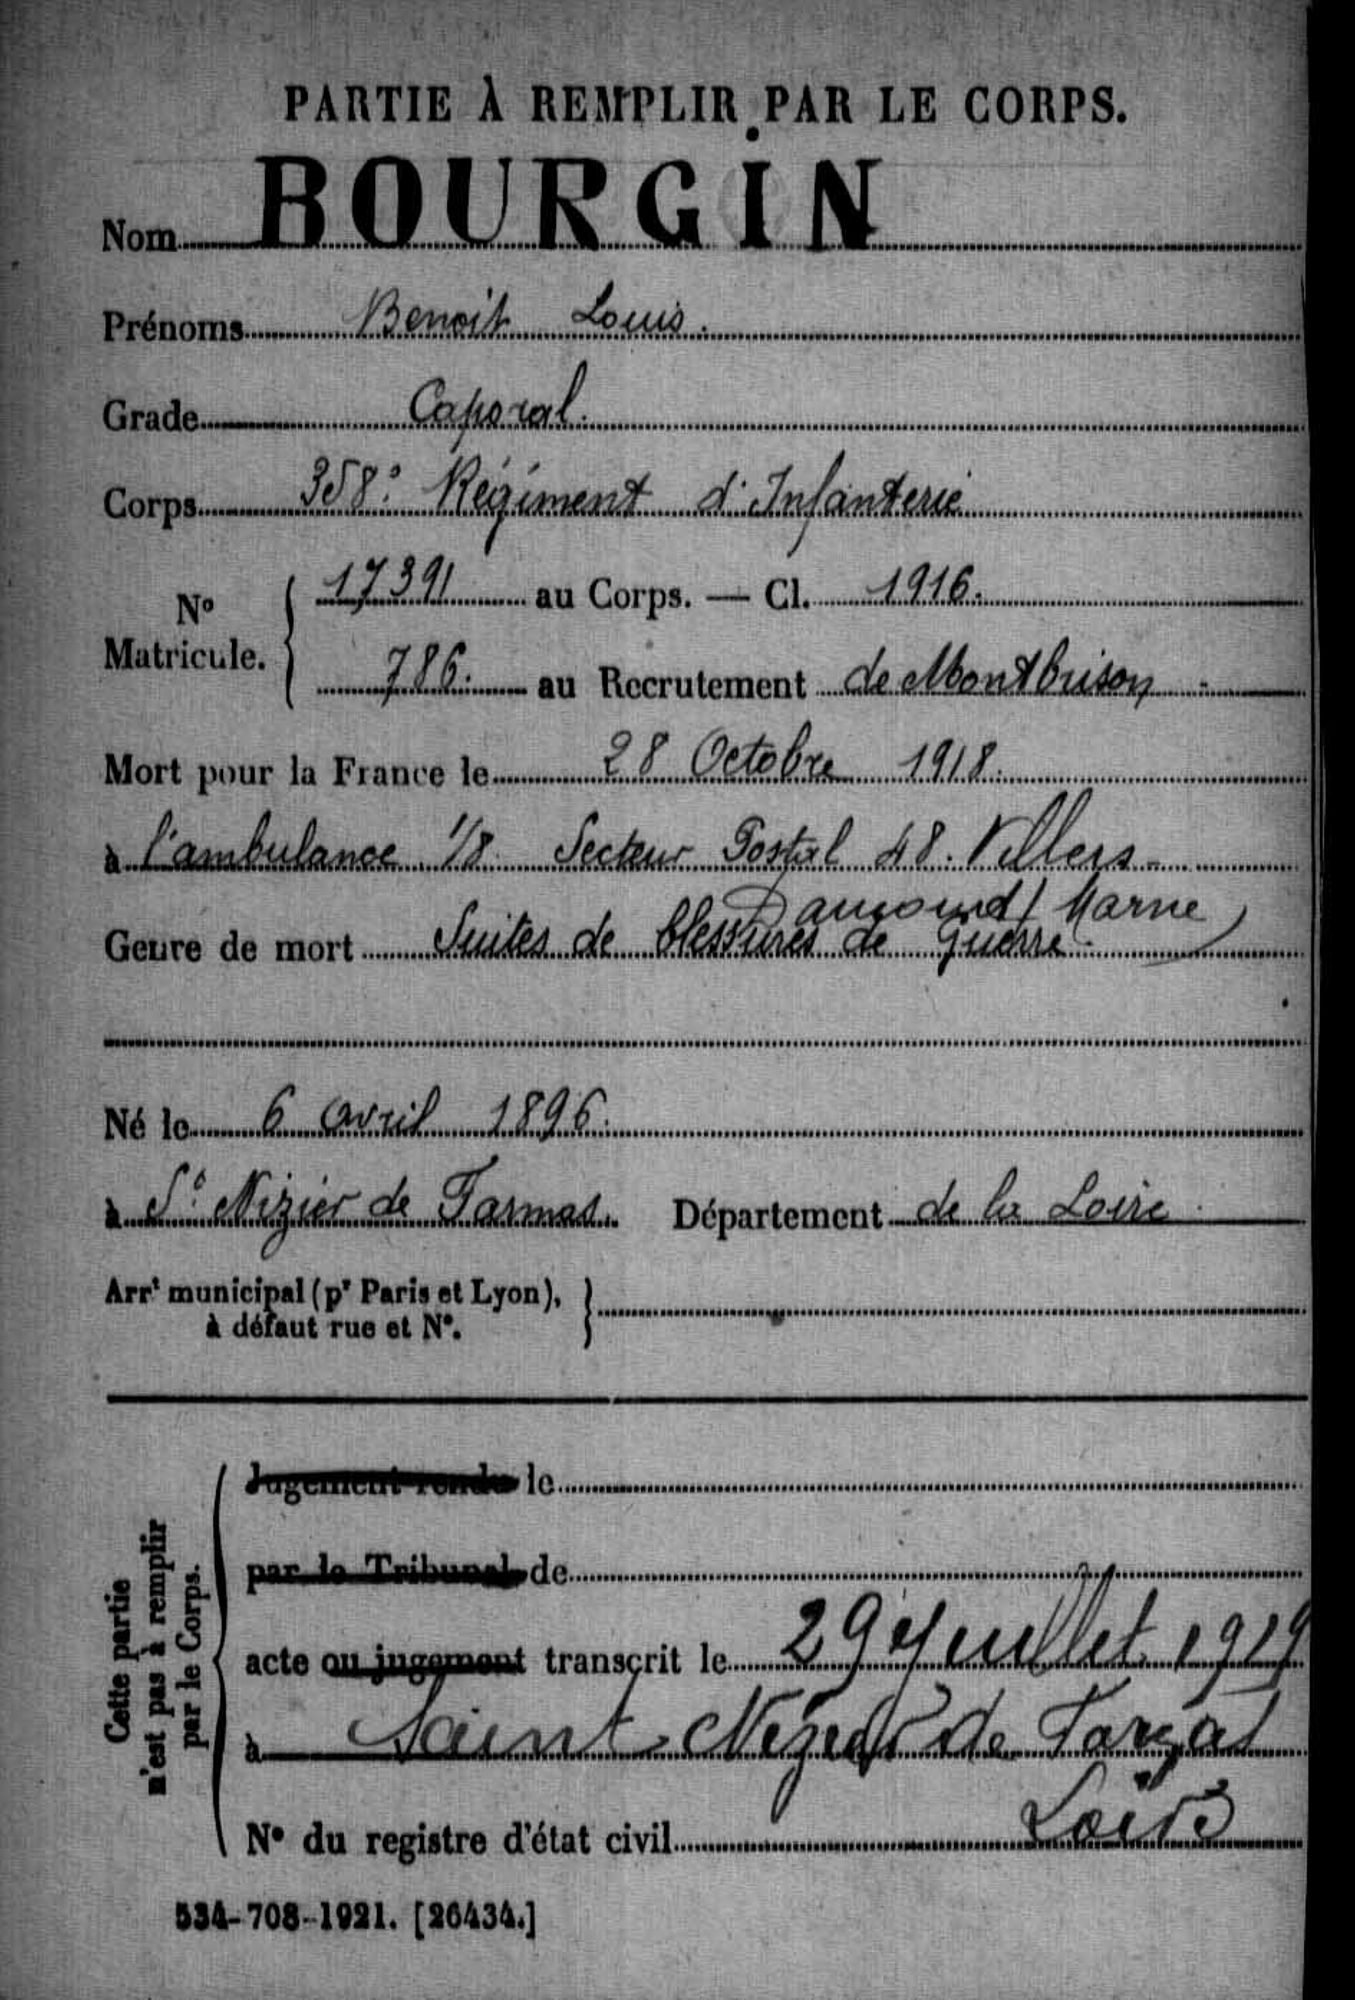 PARTIE À REMPLIR PAR LE CORPS.
Nom BOURGIN
Prénoms Benoit Louis.
Grade Caporal.
Corps 358e Régiment d'Infanterie
No Matricule. { 17391 au Corps. — Cl. 1916.
786. au Recrutement de Montbrison -
Mort pour la France le 28 Octobre 1918.
à l'ambulance 1/8 Secteur Postal 48. Villers-
Daucourt / Marne
Genre de mort Suites de blessures de Guerre.
Né le 6 avril 1896.
à St Nizier de Farmas. Département de la Loire
Arrt municipal (pr Paris et Lyon), à défaut rue et No.
Cette partie n'est pas à remplir par le Corps.
Jugement rendu le
par le Tribunal de
acte ou jugement transcrit le 29 Juillet 1919
à Saint Nizier de
Loire
No du registre d'état civil
534-708-1921. [26434.]